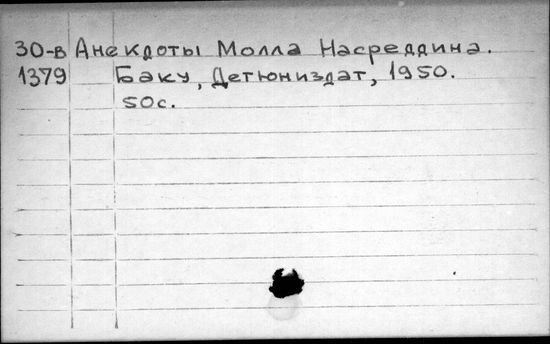 30-в Анекдоты Молла Насреддина.
1379 Баку, Детюниздат, 1950.
50с.